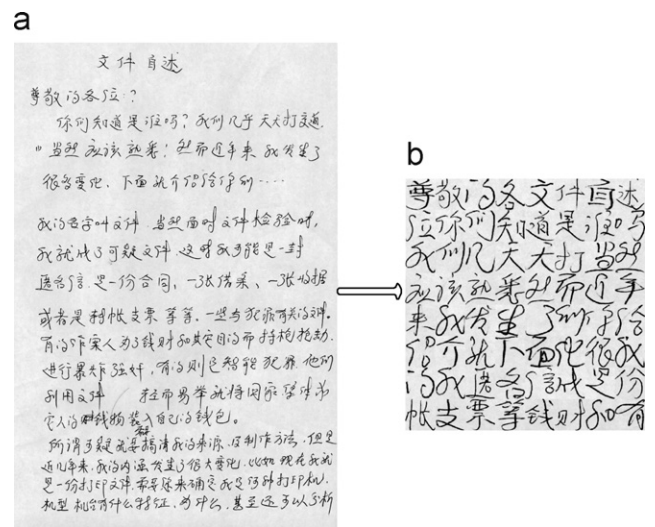 a
文件自述
尊敬的各位：
你们知道是谁吗？我们几乎天天打交道.
当然应该熟悉！然而近年来我发生了
很多变化、下面就介绍给你们……
我的名字叫文件.当然面对文件检验时,
我就成了可疑文件.这时我可能是一封
匿名信.是一份合同、一张借条、一张收据
或者是转帐支票等等.一些与犯罪有关的文件.
有的作案人为了钱财和其它目的而持枪抢劫.
进行暴炸强奸,有的则已智能犯罪.他们
利用文件 轻而易举就将国家集体和
它人的钱物装入自己的钱包。
所谓可疑就要搞清我的来源、及制作方法,但是
近几年来,我的内涵发生了很大变化,比如现在我就
是一份打印文件,而要原来确定我是何种打印机.
机型机台有什么特征、为什么、甚至还可以分析
b
尊敬的各文件自述
位你们知道是谁吗
我们几天天打当然
应该熟悉然而近年
来我发生了叫你给
绍介就下面化很我
的我匿名信成是份
帐支票等钱财和有